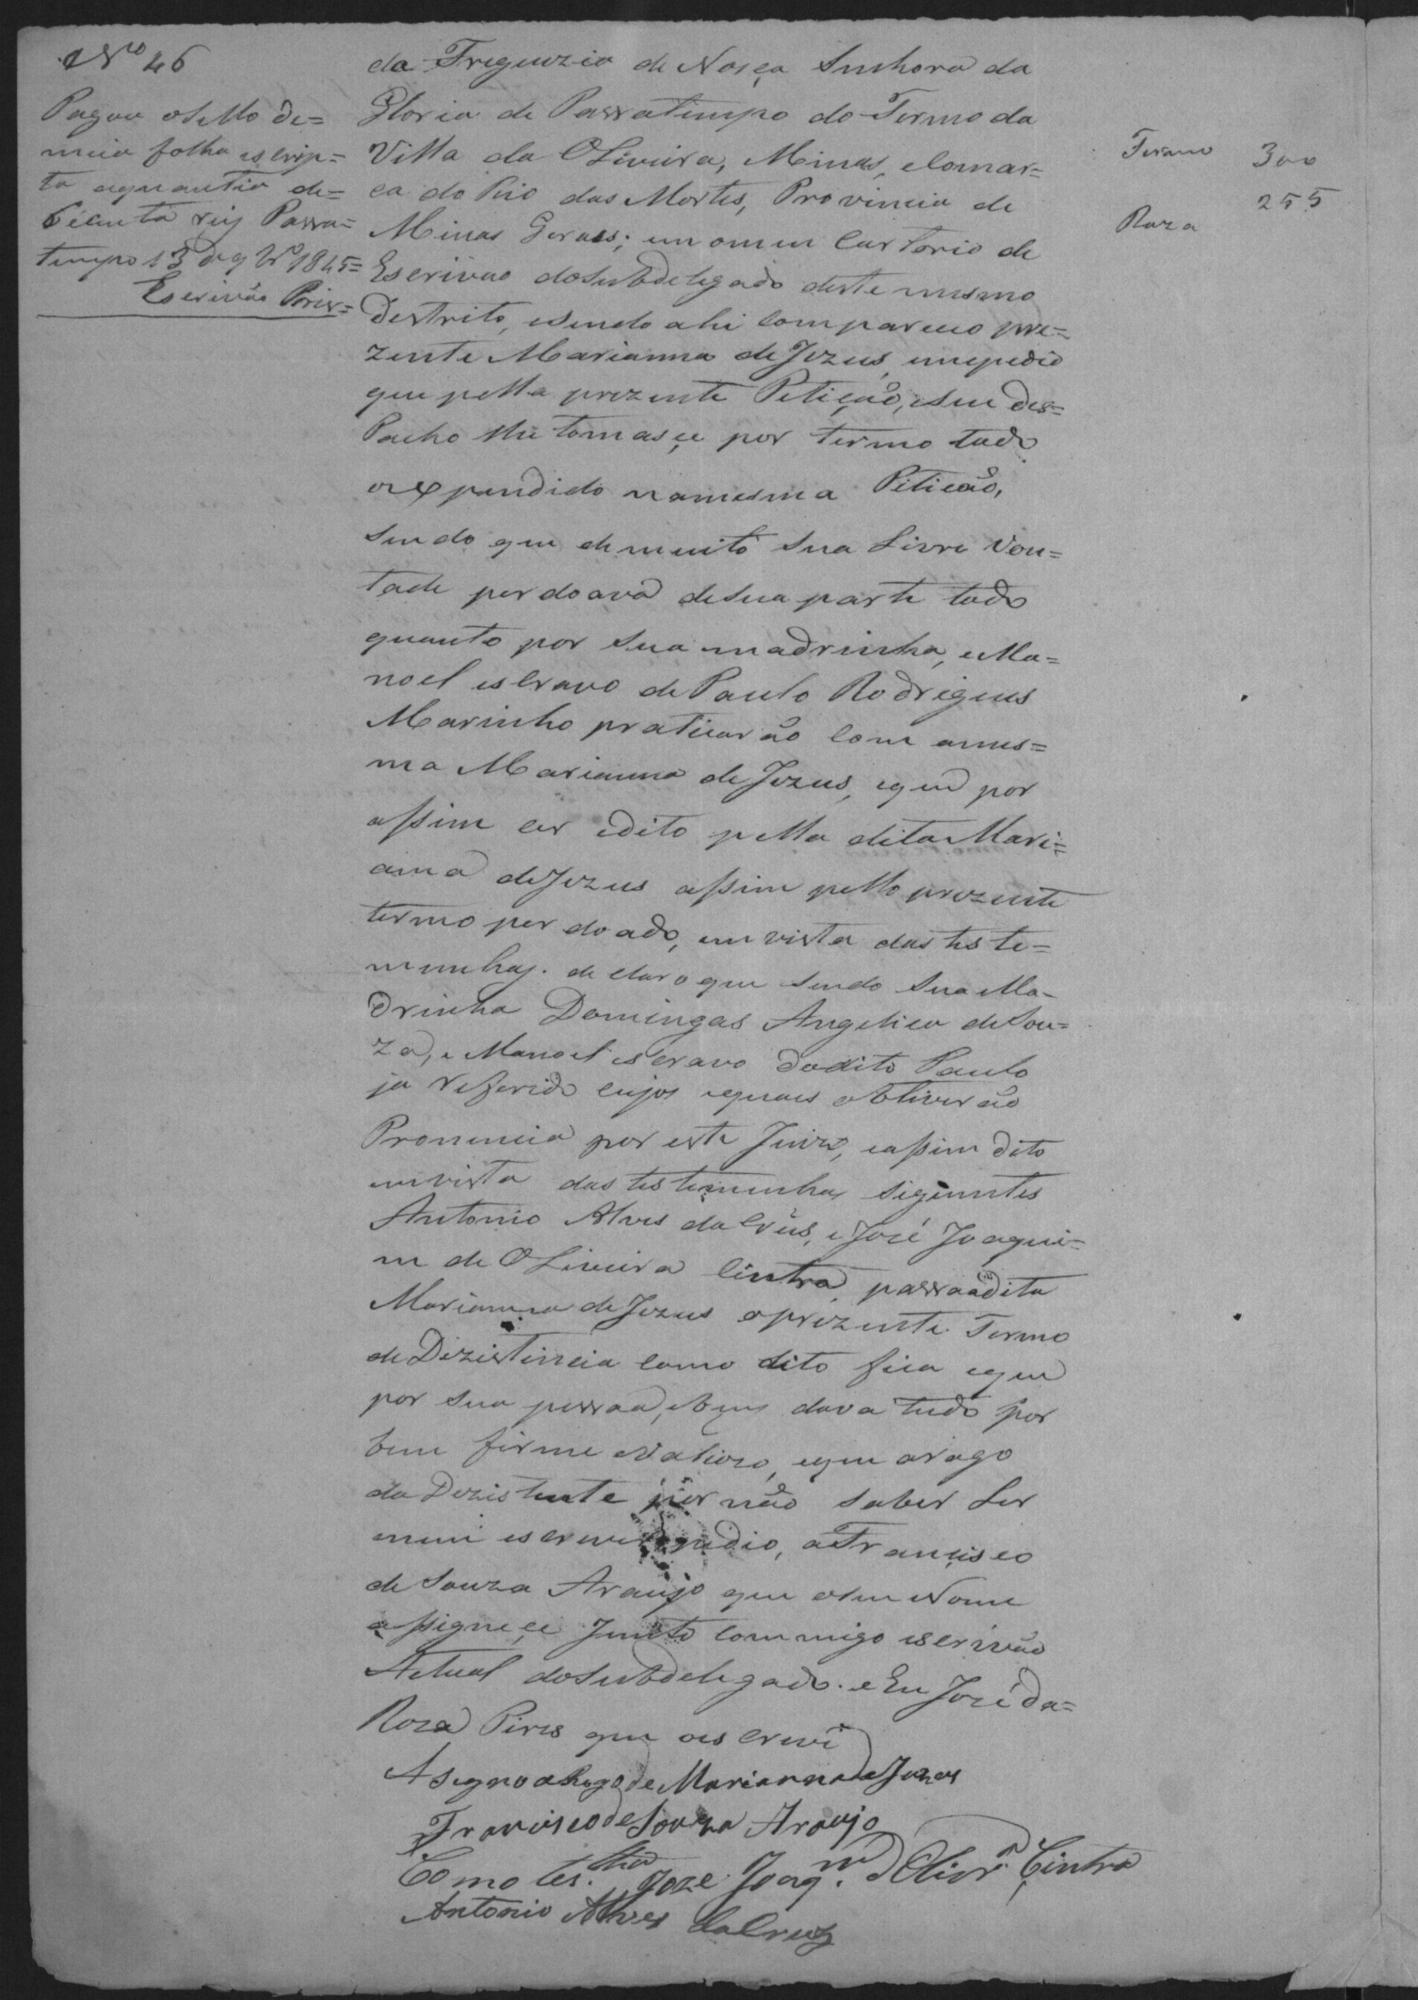 Nº 46
Pagou o Sello de=
meia folha escrip=
ta aquantia de=
Secenta reis Passa=
tempo 13 de 9br.º 1845=
Escrivão Pires=
da Freguezia de Nosça Senhora da
Gloria de Passatempo do Termo da
Villa da OLiveira, Minas, eComar=
ca do Rio das Mortes, Provincia de
Minas Geraes; em omeu Cartorio de
Escrivão doSubdelegado deste mesmo
Destrito, esendo ahi Compareceo pre=
zente Marianna de Jezus, emepedio
que pella prezente Petição, eseu des=
Pacho lhe tomasçe por termo tudo
oexpendido namesma Petição,
Sendo que demuito Sua Livre Von=
tade perdoava desua parte tudo
quanto por Sua madrinha, eMa=
noel escravo de Paulo Rodrigues
Marinho praticarão Com ames=
ma Marianna de Jezus, eque por
assim ser edito pella dita Mari=
anna deJezus assim pello prezente
termo perdoado, em vista das teste=
munhas. declaro que sendo Sua Ma=
drinha Domingas Angelica deSou=
za, e Manoel escravo dodito Paulo
ja Referido cujos equaes obtiverão
Pronuncia por este Juizo, eassim dito
emvista das testemunhas siguintes
Antonio Alves daCrus, e José Joaqui=
m de OLiveira Cintra, passaadita
Marianna de Jezus oprezente Termo
de Dezistencia Como dito fica eque
por sua pessoa, ebens dava tudo por
bem firme eValiozo, eque arogo
da Dezistente por não saber Ler
nem escrever pedio, aFrancisco
de Souza Araujo que oseu Nome
assigneçe Junto Commigo escrivão
Actual doSubdelegado. eEu José da=
Roza Pires que oescrevi
Asegno aRogo de Marianna de Jezus
Francisco de Souza Araujo
Como tes.tha Joze Joaq.m d'Olivr.a Cintra
Antonio Alves daCruz
Termo 300
255
Raza